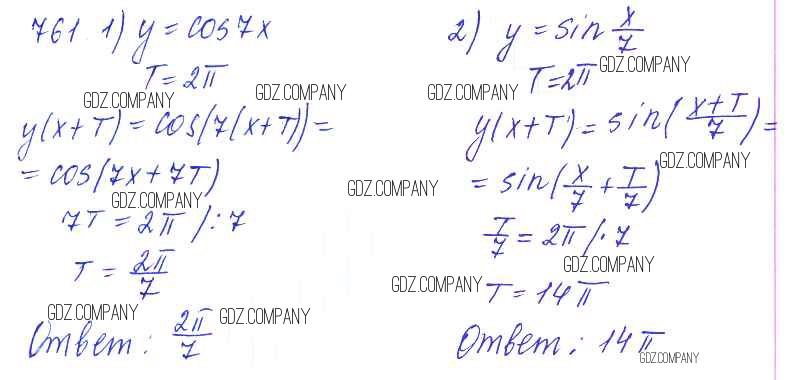 761. 1) y = cos 7x
T = 2π
GDZ.COMPANY
GDZ.COMPANY
y(x+T) = cos(7(x+T)) =
= cos(7x + 7T)
GDZ.COMPANY
7T = 2π /: 7
T = 2π/7
GDZ.COMPANY
GDZ.COMPANY
Ответ: 2π/7
2) y = sin x/7
GDZ.COMPANY
T = 2π
GDZ.COMPANY
y(x+T) = sin((x+T)/7) =
GDZ.COMPANY
GDZ.COMPANY
= sin(x/7 + T/7)
T/7 = 2π /· 7
GDZ.COMPANY
GDZ.COMPANY
T = 14π
Ответ: 14π
GDZ.COMPANY